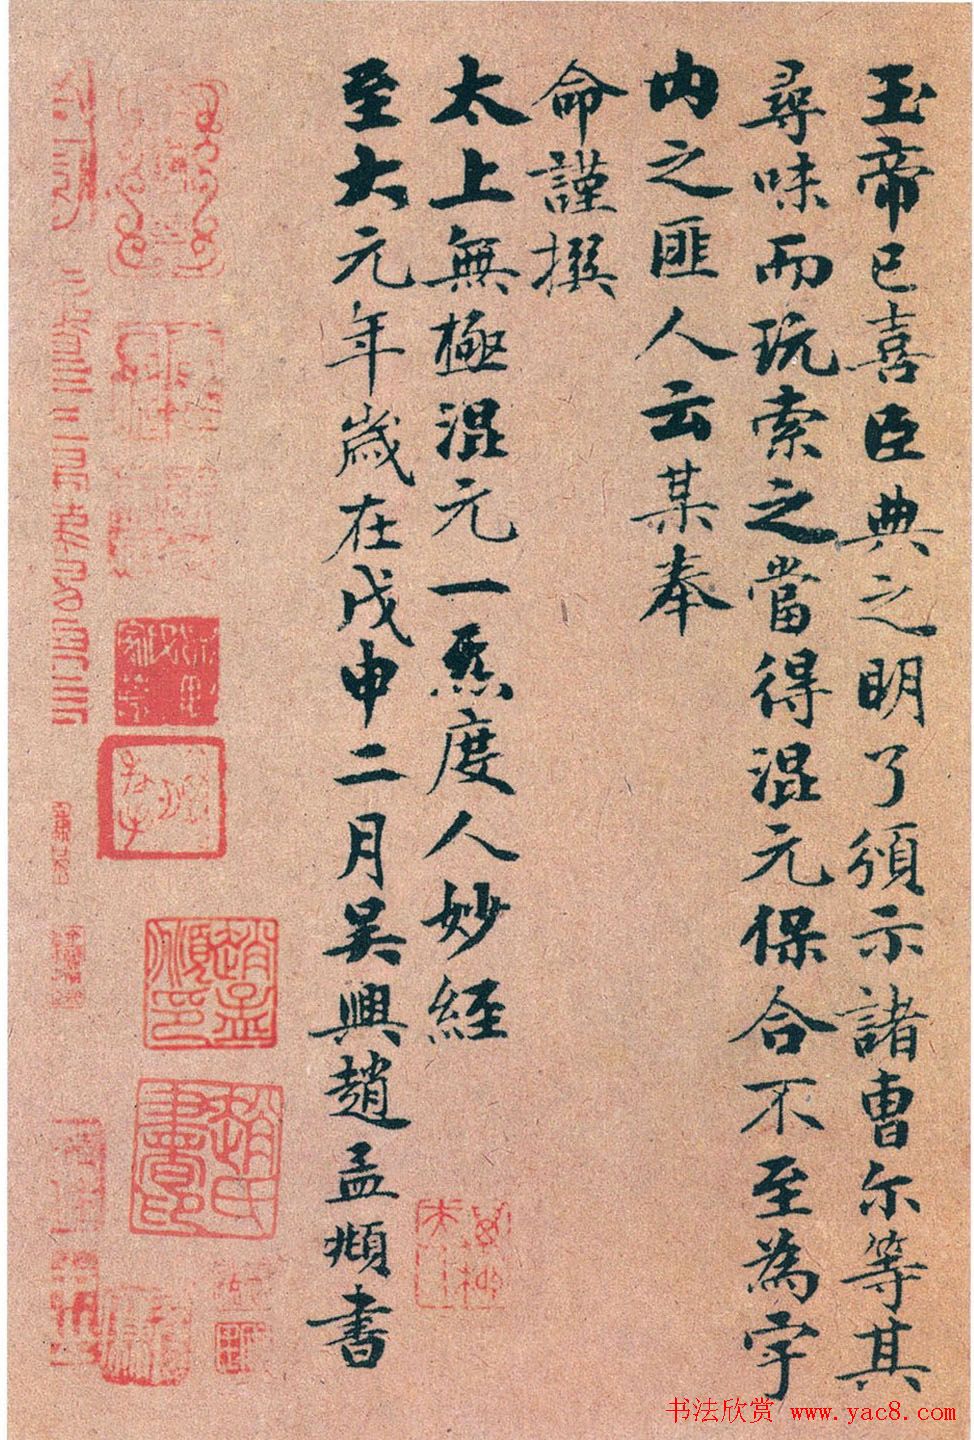 玉帝已喜臣典之明了頒示諸曹尔等其
尋味而玩索之當得混元保合不至為宇
内之匪人云某奉
命謹撰
太上無極混元一炁度人妙經
至大元年歲在戊申二月吳興趙孟頫書
趙孟頫印
趙氏書印
书法欣赏 www.yac8.com